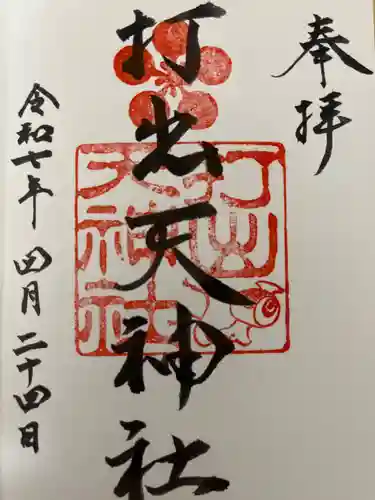 奉拝
打出天神社
令和七年 四月二十四日
打出
天神社